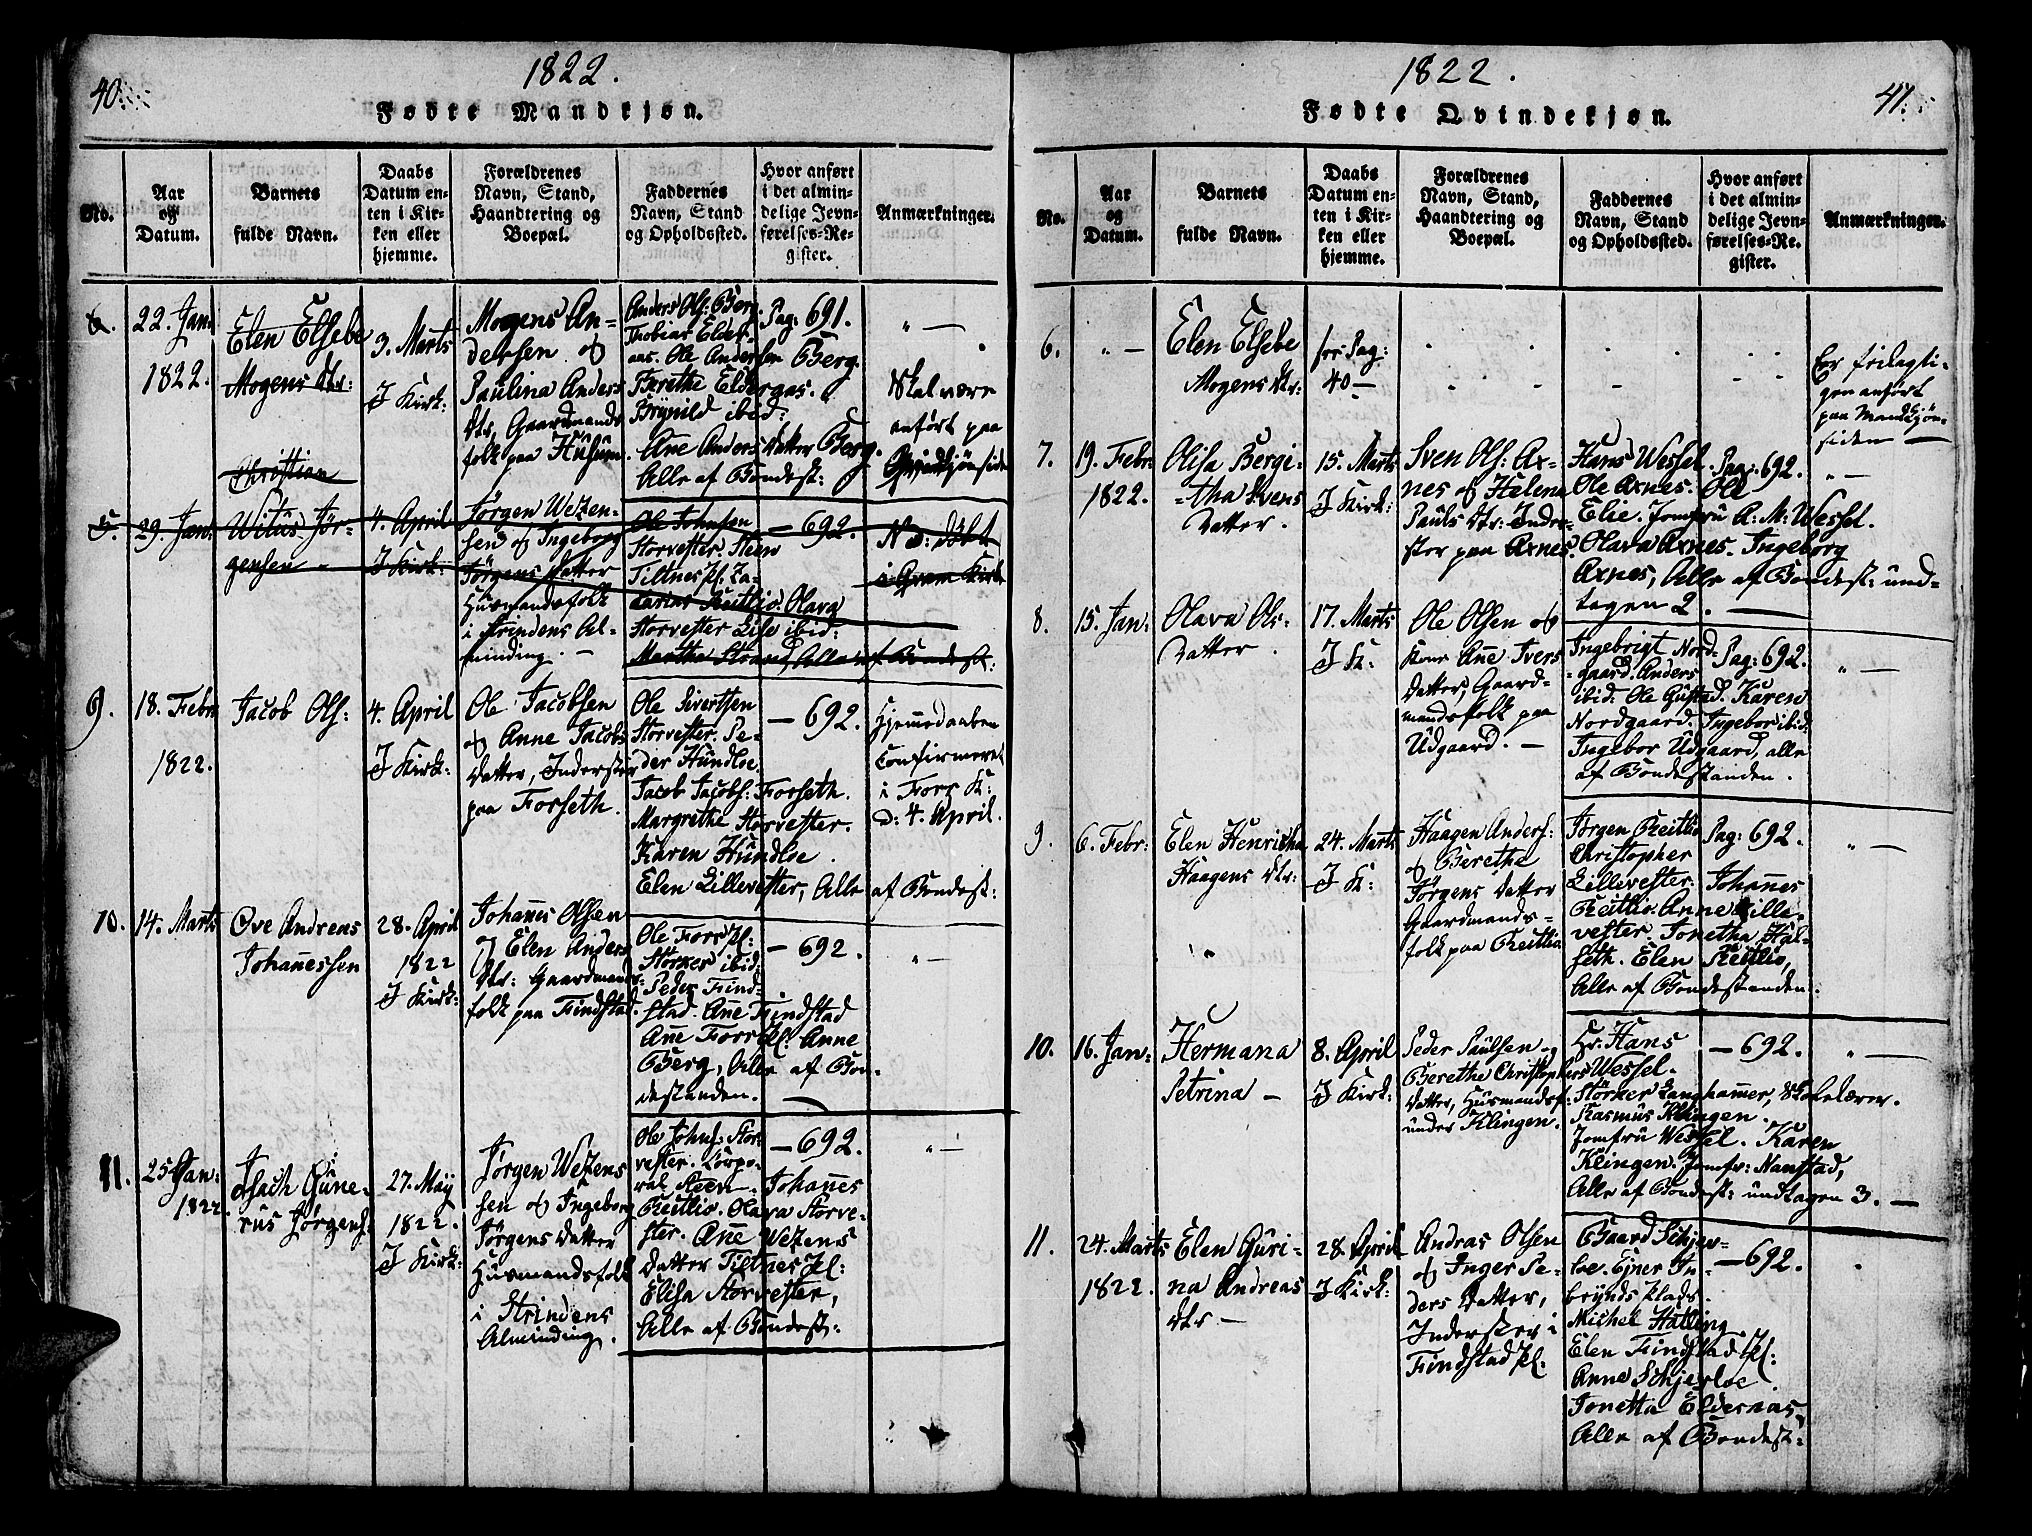 40.
1822.
Fødte Mandkjøn.
No.
Aar
og
Datum.
Barnets
fulde Navn.
Daabs
Datum en-
ten i Kir-
ken eller
hjemme.
Forældrenes
Navn, Stand,
Haandtering og
Boepæl.
Faddernes
Navn, Stand
og Opholdssted.
Hvor anført
i det almin-
delige Jevn-
førelses-Re-
gister.
Anmærkninger.
22. Jan:
1822.
Elen Elsebe
Mogens Dtr:
3. Marts
I Kirk:
Mogens An-
dersen og
Paulina Anders
Dtr, Gaardmands
folk paa Husum.
Anders Ols: Berg.
Thobias Elder-
aas. Ole Andersen Berg.
Berethe Elderaas.
Brynild ibid:
Ane Anders Datter Berg.
Alle af Bondest:
Pag: 691.
" —
Skal være
anført paa
Qvindkjønsiden
Christian
29. Jan:
Witus Jør-
gensen
4. April
I Kirk:
Jørgen Wetzen-
sen og Ingeborg
Jørgens Datter
Husmandsfolk
i Strindens Al-
minding. —
Ole Johnsen
Storvester. Steen
Tiltnes Pl. Za-
Reitlio. Olava
Storvester Lise ibid:
Martha Strand, Alle af Bondest:
— 692.
i Kirk
9.
18. Febr:
1822.
Jacob Ols:
4. April
I Kirk:
Ole Jacobsen
og Anne Jacobs
Datter, Inderster
paa Forseth.
Ole Sivertsen
Storvester. Pe-
der Hundloe.
Jacob Jacobs: Forseth.
Margrethe Storvester.
Karen Hundloe.
Elen Lillevester, Alle af Bondest:
— 692.
Hjemmedaaben
Confirmeret
i Fors K:
d: 4. April.
10.
14. Marts
Ove Andreas
Johanessen
28. April
1822
I Kirk:
Johanes Olsen
og Elen Anders
Dtr: Gaardmands
folk paa Findstad.
Ole Forr Pl:
Størker ibid:
Peder Find-
stad. Ane Findstad
Ane Forr Pl: Anne
Berg, Alle af Bon-
destanden. —
— 692.
" —
11.
25. Jan:
1822.
Isach Gune-
rus Jørgens:
27. May
1822.
I Kirk:
Jørgen Wetzens
sen og Ingeborg
Jørgens Datter
Husmandsfolk
i Strindens
Alminding.
Ole Johns: Stor-
vester. Corpo-
ral Steen. Johanes
Reitlio. Olava Storve-
ster. Ane Wetzens
Datter Tiltnes Pl:
Elisa Storvester,
Alle af Bondest:
— 692.
" —
1822.
41.
Fødte Qvindekjøn.
No.
Aar
og
Datum.
Barnets
fulde Navn.
Daabs
Datum en-
ten i Kir-
ken eller
hjemme.
Forældrenes
Navn, Stand,
Haandtering og
Boepæl.
Faddernes
Navn, Stand
og Opholdssted.
Hvor anført
i det almin-
delige Jevn-
førelses-Re-
gister.
Anmærkninger.
6.
" —
Elen Elsebe
Mogens Dtr:
for Pag:
40 —
Er feilagti-
gen anført
paa Mandkjøn-
siden —
7.
19. Febr:
1822.
Olisa Bergi-
-tha Svens
Datter.
15. Marts
I Kirk:
Sven Ols: Ax-
nes og Helena
Pauls Dtr: Inder-
ster paa Axnes.
Hans Wessel.
Ole Axnes. Ole
Elie. Jomfru A: M: Wessel.
Olava Axnes. Ingeborg
Axnes, Alle af Bondest: und-
tagen 2. —
Pag: 692.
" —
8.
15. Jan:
Olava Ols-
Datter.
17. Marts
I K:
Ole Olsen og
Kone Ane Ivers
Datter, Gaard-
mandsfolk paa
Udgaard. —
Ingebrigt Nord-
-gaard. Anders
ibid. Ole Gustad. Karen
Nordgaard. Ingebor ibid:
Ingebor Udgaard, alle
af Bondestanden.
Pag: 692.
" —
9.
6. Febr:
Elen Henricha
Haagens Dtr:
24. Marts
I K:
Haagen Anders:
og Beretha
Jørgens Datter
Gaardmands-
folk paa Reitlio.
Jørgen Reitlio.
Christopher
Lillevester. Johanes
Reitlio. Anne Lille-
vester. Jonetha Hal-
seth. Elen Reitlio,
Alle af Bondestanden.
Pag: 692.
" —
10.
16. Jan:
Hermana
Petrina —
8. April
I Kirk:
Peder Paulsen og
Berethe Christophers
Datter, Husmandsf:
under Klingen.
Hr. Hans
Wessel.
Størker Langhamer, Skolelærer.
Rasmus Klingen.
Jomfru Wessel. Karen
Klingen. Jomfr: Nanstad,
Alle af Bondest: undtagen 3. —
— 692.
" —
11.
24. Marts
1822.
Elen Guri-
na Andreas
Dtr —
28. April
I Kirk:
Andras Olsen
og Inger Pe-
ders Datter,
Inderster i
Findstad Pl:
Baard Schjer-
loe. Ejner In-
brynds Plads.
Michel Halling
Elen Findstad Pl:
Anne Schjerloe.
Jonetta Eldernas,
Alle af Bondest:
— 692.